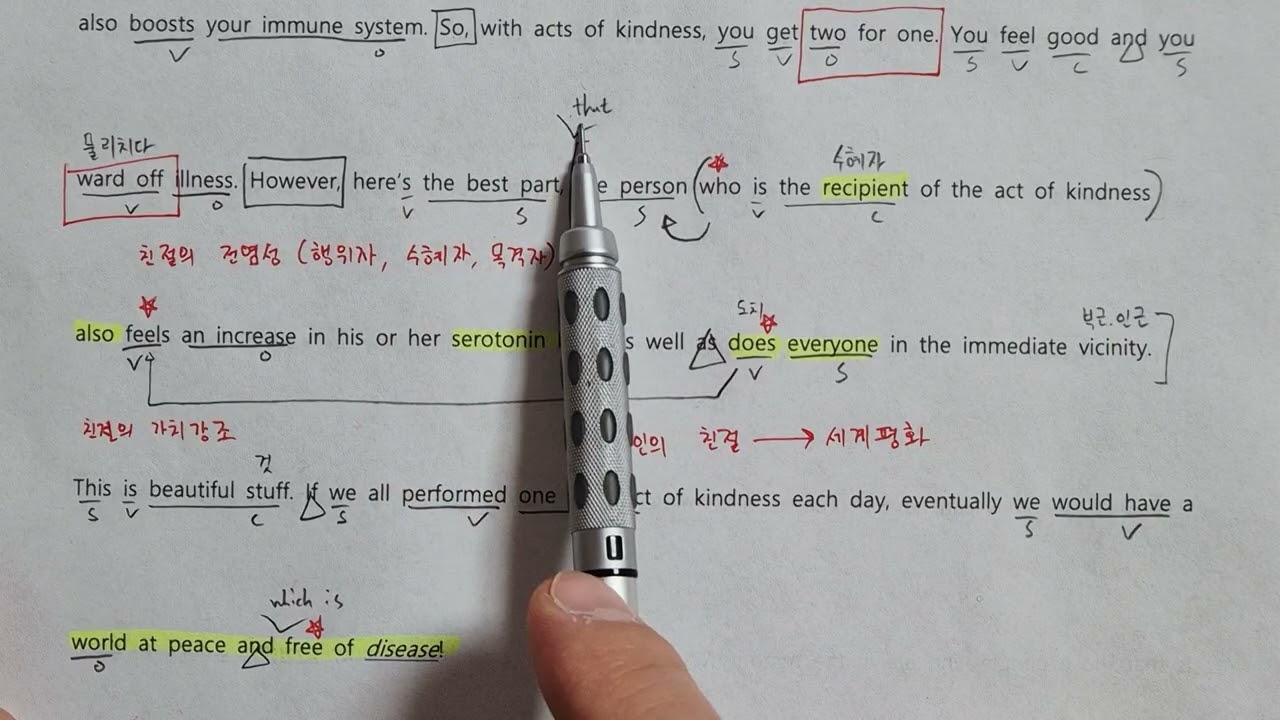 also boosts your immune system. So, with acts of kindness, you get two for one. You feel good and you
V O S V O S V C S
that
물리치다 수혜자
ward off illness. However, here's the best part, person (who is the recipient of the act of kindness)
V O V S S V C
친절의 전염성 (행위자, 수혜자, 목격자)
도치 부근.인근
also feels an increase in his or her serotonin well as does everyone in the immediate vicinity.
V O V S
친절의 가치강조 친절 → 세계평화
것
This is beautiful stuff. If we all performed one of kindness each day, eventually we would have a
S V C S V S V
which is
world at peace and free of disease!
O